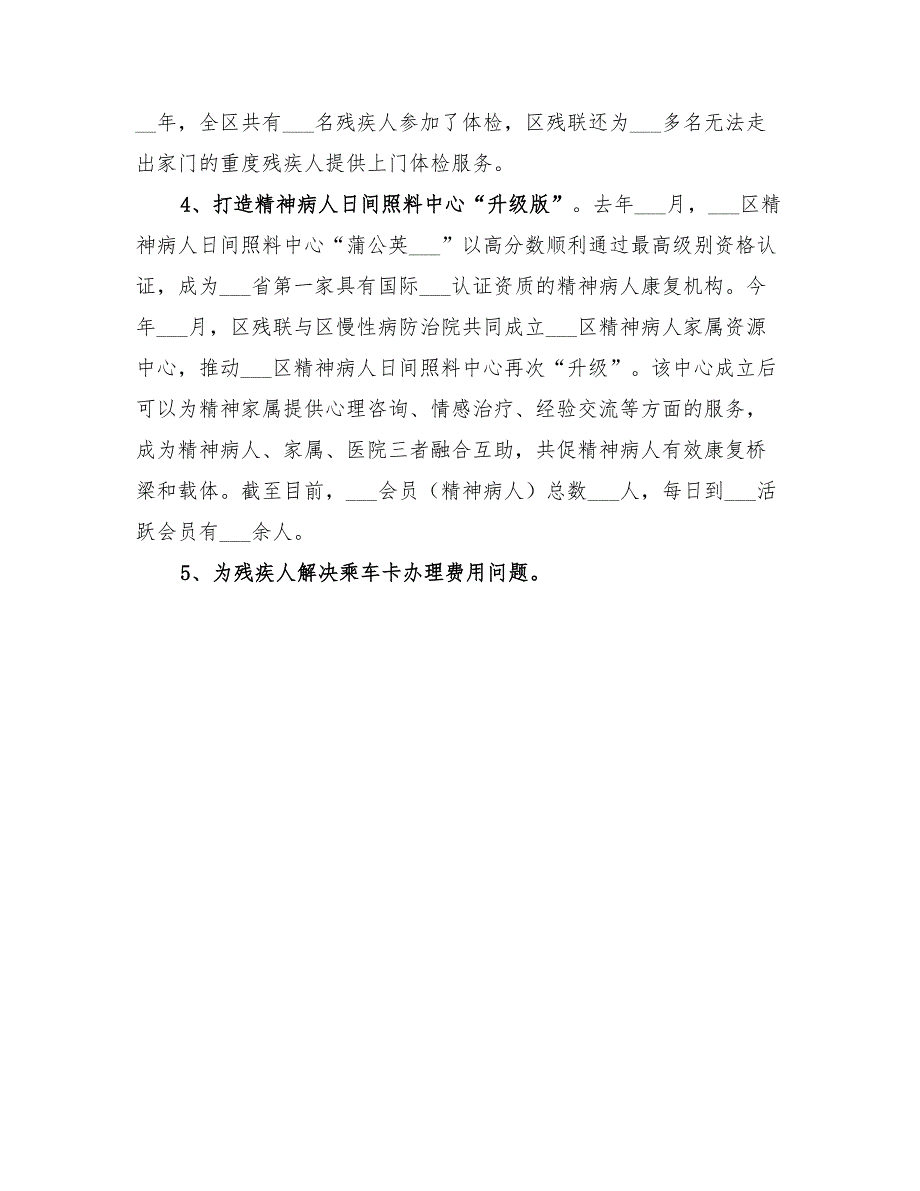 __年，全区共有___名残疾人参加了体检，区残联还为___多名无法走
出家门的重度残疾人提供上门体检服务。
4、打造精神病人日间照料中心“升级版”。去年___月，___区精
神病人日间照料中心“蒲公英___”以高分数顺利通过最高级别资格认
证，成为___省第一家具有国际___认证资质的精神病人康复机构。今
年___月，区残联与区慢性病防治院共同成立___区精神病人家属资源
中心，推动___区精神病人日间照料中心再次“升级”。该中心成立后
可以为精神家属提供心理咨询、情感治疗、经验交流等方面的服务，
成为精神病人、家属、医院三者融合互助，共促精神病人有效康复桥
梁和载体。截至目前，___会员（精神病人）总数___人，每日到___活
跃会员有___余人。
5、为残疾人解决乘车卡办理费用问题。